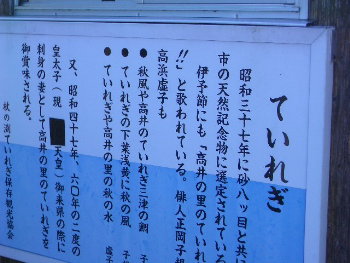 ていれぎ
昭和三十七年に砂八ッと共に
市の天然記念物に選定されている
伊予節にも「高井の里のていれ
!!」と歌われている。俳人正岡子
高浜虚子も
●秋風や高井のていれぎ三津の鯛 子
●ていれぎの下葉浅黄に秋の風 子
●ていれぎや高井の里の秋の水 虚子
又、昭和四十七年、六〇年の二度の
皇太子(現 天皇)御来県の際に
刺身の妻として高井の里のていれぎを
御賞味される。
杖の渕ていれぎ保存観光協会